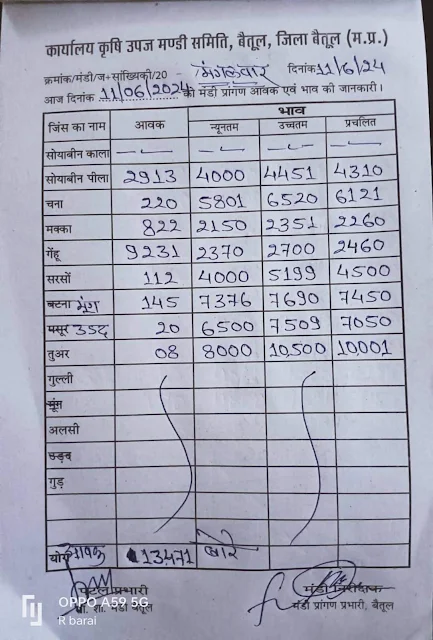 कार्यालय कृषि उपज मण्डी समिति, बैतूल, जिला बैतूल (म.प्र.)
क्रमांक/मंडी/ज+सांख्यिकी/20 - मंगलवार दिनांक 11/6/24
आज दिनांक 11/06/2024 की मंडी प्रांगण आवक एवं भाव की जानकारी।
जिंस का नाम आवक भाव
न्यूनतम उच्चतम प्रचलित
सोयाबीन काला — — — —
सोयाबीन पीला 2913 4000 4451 4310
चना 220 5801 6520 6121
मक्का 822 2150 2351 2260
गेंहू 9231 2370 2700 2460
सरसों 112 4000 5199 4500
बटना मूंग 145 7376 7690 7450
मसूर उड़द 20 6500 7509 7050
तुअर 08 8000 10,500 10,001
गुल्ली
मूंग
अलसी
उड़द
गुड़
योग आवक 13471 बोरे
प्रभारी मंडी निरीक्षक
मंडी बैतूल मंडी प्रांगण प्रभारी, बैतूल
OPPO A59 5G
R barai